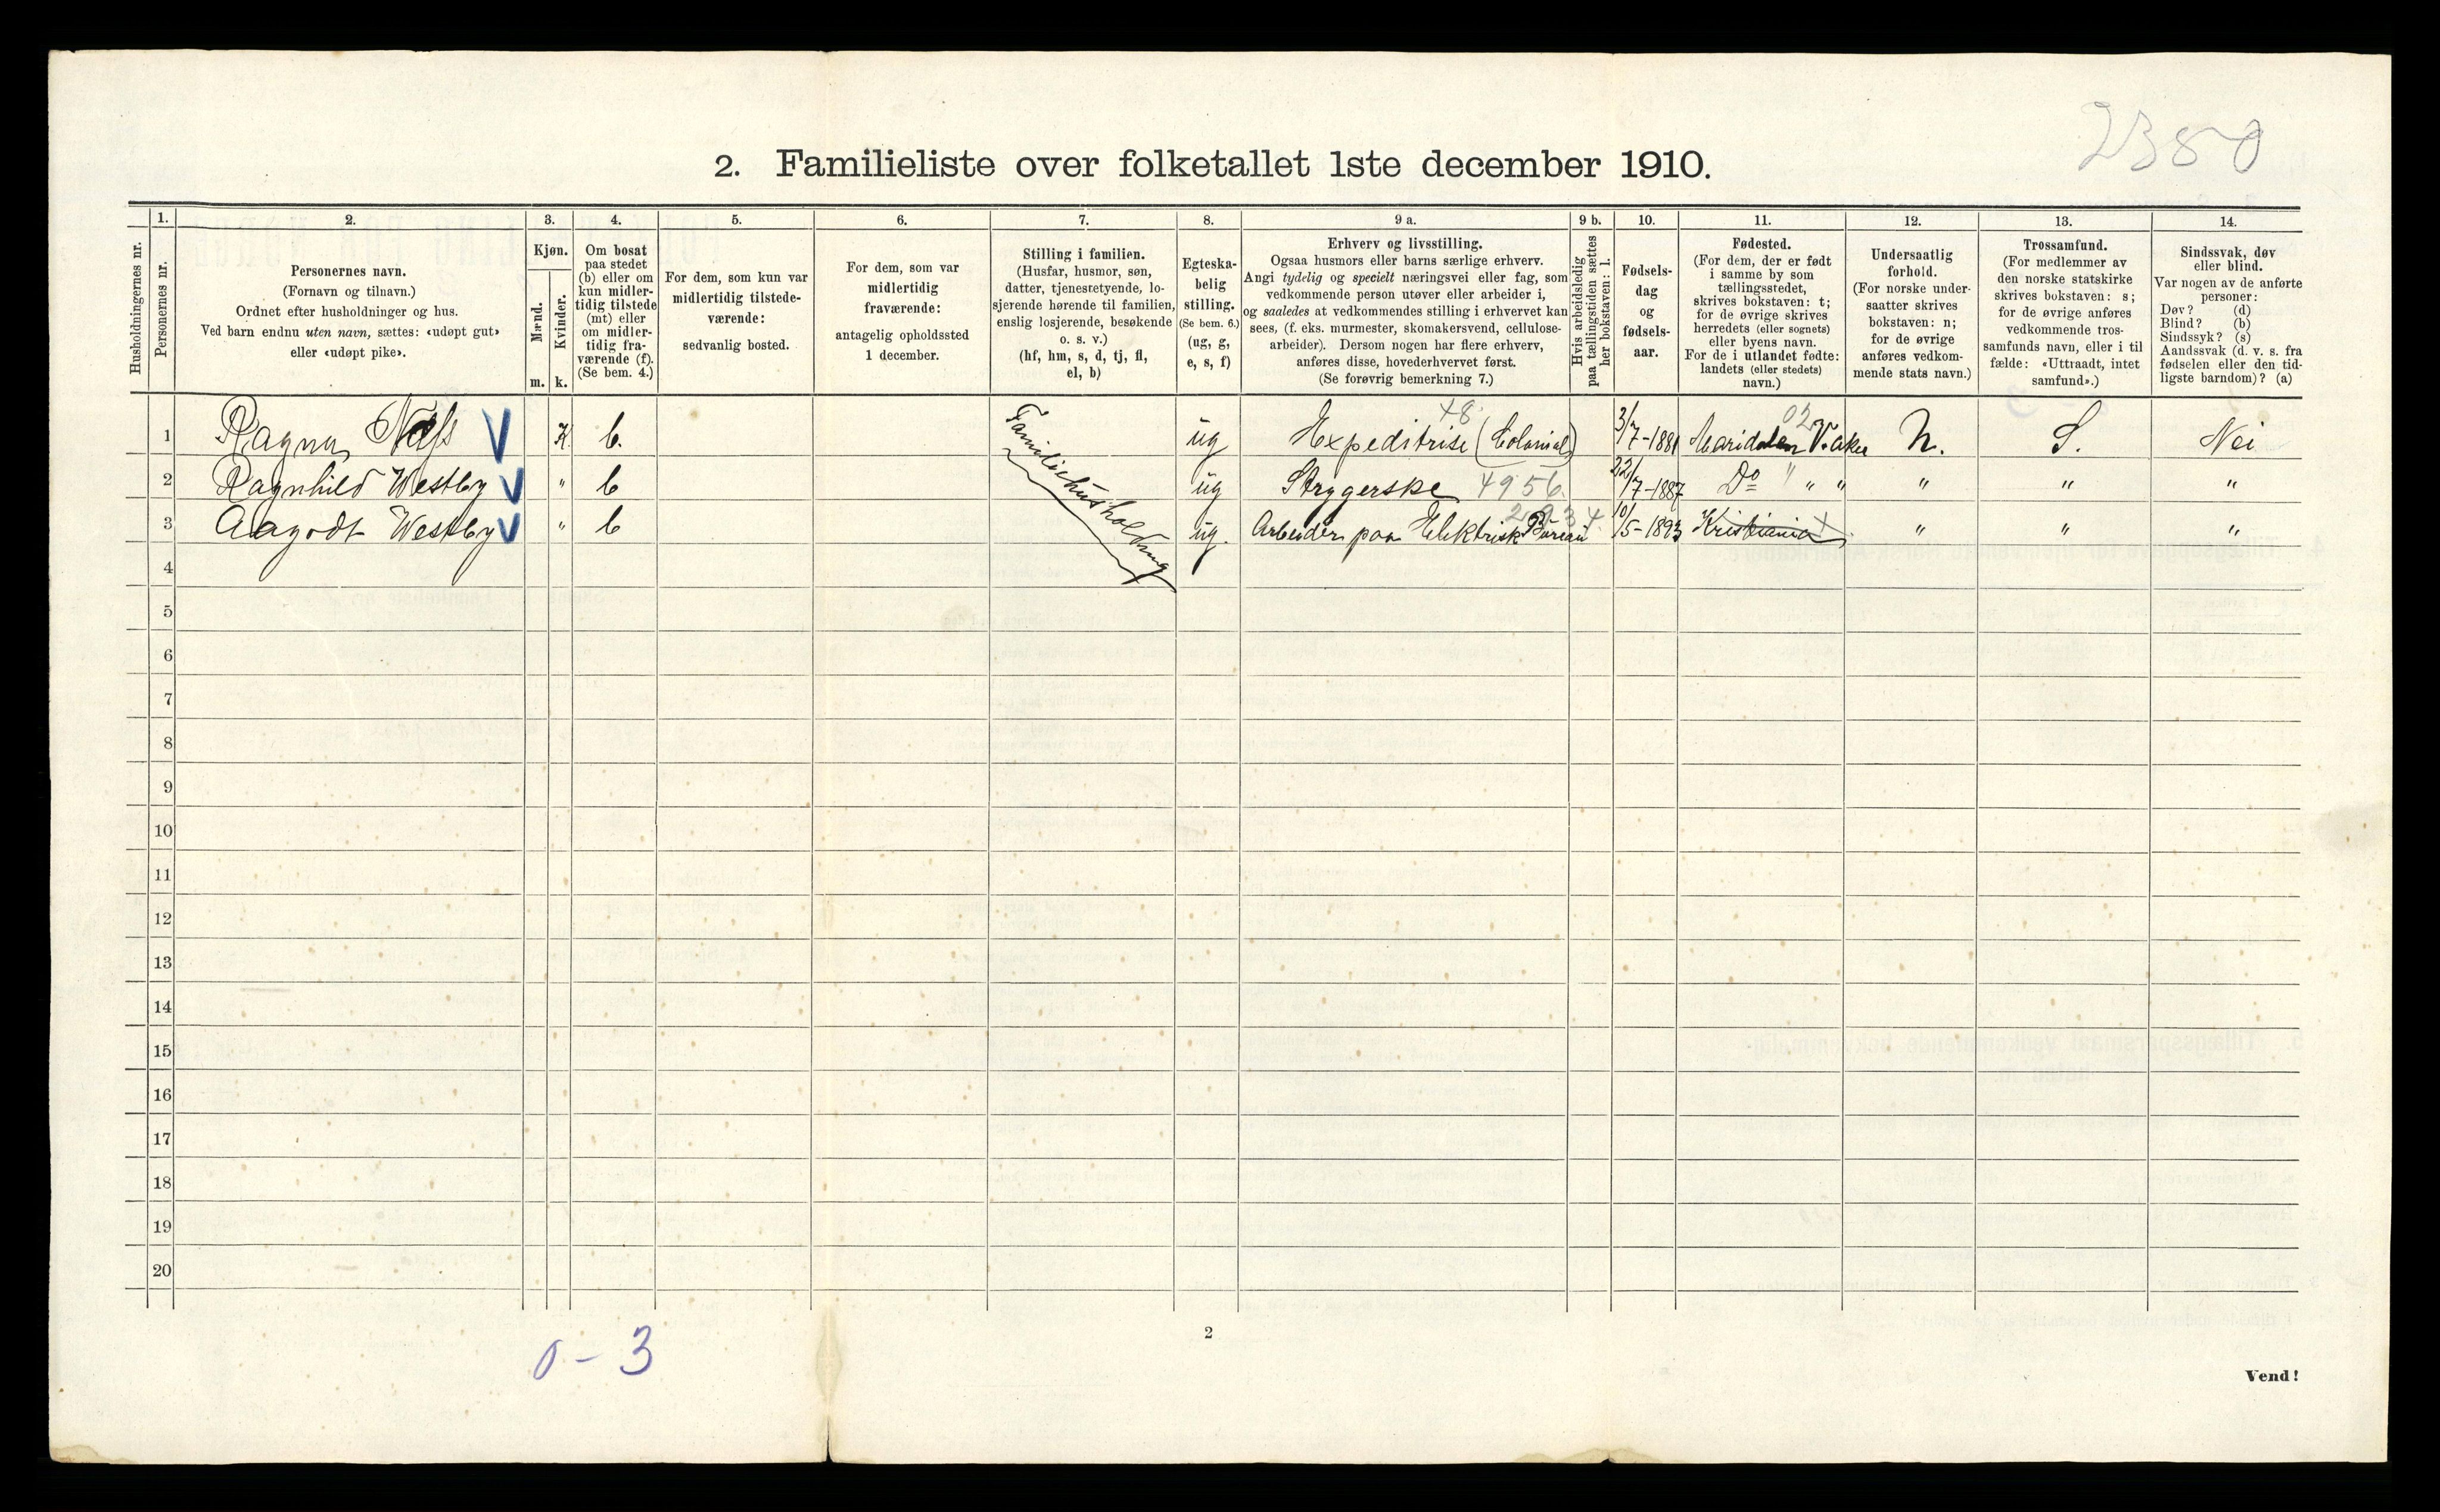 2380
2. Familieliste over folketallet 1ste december 1910.
Husholdningernes nr.
1.
Personernes nr.
2.
Personernes navn.
(Fornavn og tilnavn.)
Ordnet efter husholdninger og hus.
Ved barn endnu uten navn, sættes: «udøpt gut»
eller «udøpt pike».
3.
Kjøn.
Mænd.
m.
Kvinder.
k.
4.
Om bosat
paa stedet
(b) eller om
kun midler-
tidig tilstede
(mt) eller
om midler-
tidig fra-
værende (f).
(Se bem. 4.)
5.
For dem, som kun var
midlertidig tilstede-
værende:
sedvanlig bosted.
6.
For dem, som var
midlertidig
fraværende:
antagelig opholdssted
1 december.
7.
Stilling i familien.
(Husfar, husmor, søn,
datter, tjenestetyende, lo-
sjerende hørende til familien,
enslig losjerende, besøkende
o. s. v.)
(hf, hm, s, d, tj, fl,
el, b)
8.
Egteska-
belig
stilling.
(Se bem. 6.)
(ug, g,
e, s, f)
9 a.
Erhverv og livsstilling.
Ogsaa husmors eller barns særlige erhverv.
Angi tydelig og specielt næringsvei eller fag, som
vedkommende person utøver eller arbeider i,
og saaledes at vedkommendes stilling i erhvervet kan
sees, (f. eks. murmester, skomakersvend, cellulose-
arbeider). Dersom nogen har flere erhverv,
anføres disse, hovederhvervet først.
(Se forøvrig bemerkning 7.)
9 b.
Hvis arbeidsledig
paa tællingstiden sættes
her bokstaven: l.
10.
Fødsels-
dag
og
fødsels-
aar.
11.
Fødested.
(For dem, der er født
i samme by som
tællingsstedet,
skrives bokstaven: t;
for de øvrige skrives
herredets (eller sognets)
eller byens navn.
For de i utlandet fødte:
landets (eller stedets)
navn.)
12.
Undersaatlig
forhold.
(For norske under-
saatter skrives
bokstaven: n;
for de øvrige
anføres vedkom-
mende stats navn.)
13.
Trossamfund.
(For medlemmer av
den norske statskirke
skrives bokstaven: s;
for de øvrige anføres
vedkommende tros-
samfunds navn, eller i til
fælde: «Uttraadt, intet
samfund».)
14.
Sindssvak, døv
eller blind.
Var nogen av de anførte
personer:
Døv? (d)
Blind? (b)
Sindssyk? (s)
Aandssvak (d. v. s. fra
fødselen eller den tid-
ligste barndom)? (a)
1 Ragna Næss V K. b. Familiehusholdning ug Expeditrise (Colonial) 48 3/7-1881 Maridalen V. aker 02 N. S. Nei
2 Ragnhild Westby V " b ug Strygerske 4956 22/7-1887 Do " " " " " "
3 Aagodt Westby V " b ug. Arbeider paa Elektrisk Bureau 2934 10/5-1893 Kristiania + " " "
4
5
6
7
8
9
10
11
12
13
14
15
16
17
18
19
20
0-3
2
Vend!